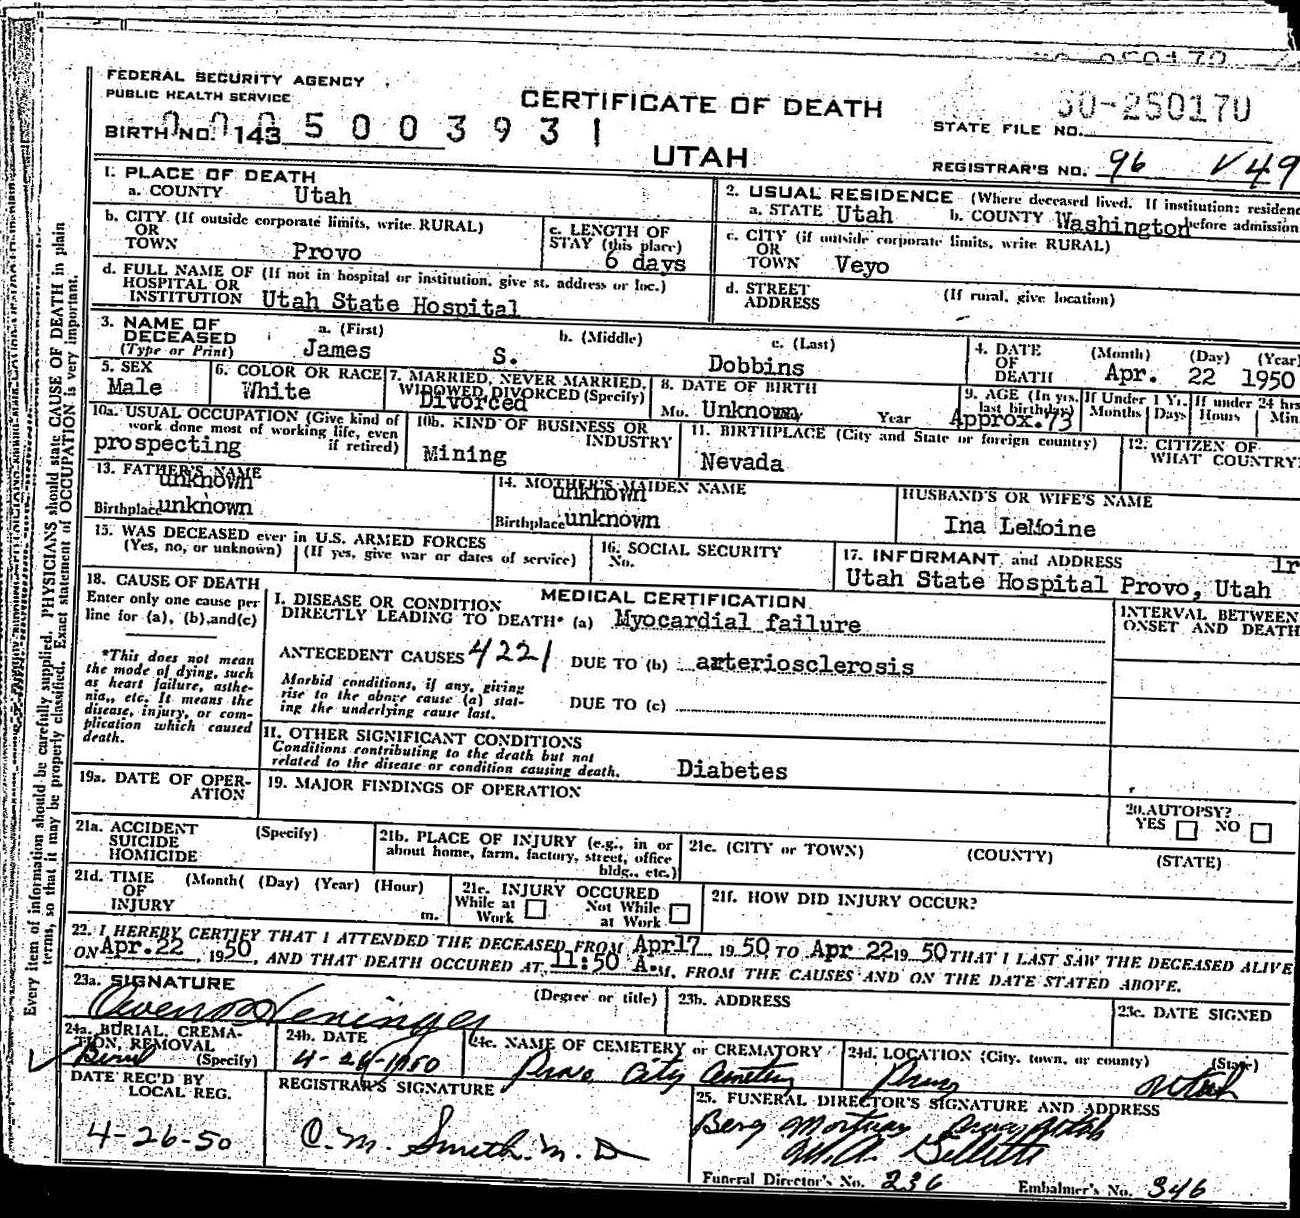 FEDERAL SECURITY AGENCY
PUBLIC HEALTH SERVICE
CERTIFICATE OF DEATH
50-250170
STATE FILE NO.
BIRTH NO. 143 5 0 0 3 9 3 1
UTAH
REGISTRAR'S NO. 96 V49
1. PLACE OF DEATH
a. COUNTY Utah
2. USUAL RESIDENCE (Where deceased lived. If institution: residence
a. STATE Utah b. COUNTY Washington before admission
b. CITY (If outside corporate limits, write RURAL)
OR
TOWN Provo
c. LENGTH OF
STAY (this place)
6 days
c. CITY (if outside corporate limits, write RURAL)
OR
TOWN Veyo
d. FULL NAME OF (If not in hospital or institution, give st. address or loc.)
HOSPITAL OR
INSTITUTION Utah State Hospital
d. STREET
ADDRESS (If rural, give location)
3. NAME OF
DECEASED
(Type or Print)
a. (First) b. (Middle) c. (Last)
James S. Dobbins
4. DATE
OF
DEATH
(Month) (Day) (Year)
Apr. 22 1950
5. SEX
Male
6. COLOR OR RACE
White
7. MARRIED, NEVER MARRIED,
WIDOWED DIVORCED (Specify)
Divorced
8. DATE OF BIRTH
Mo. Unknown Year
9. AGE (In yrs. last birthday)
Approx. 73
If Under 1 Yr. If under 24 hrs
Months Days Hours Min
10a. USUAL OCCUPATION (Give kind of
work done most of working life, even
if retired)
prospecting
10b. KIND OF BUSINESS OR
INDUSTRY
Mining
11. BIRTHPLACE (City and State or foreign country)
Nevada
12. CITIZEN OF
WHAT COUNTRY?
13. FATHER'S NAME
unknown
Birthplace unknown
14. MOTHER'S MAIDEN NAME
unknown
Birthplace unknown
HUSBAND'S OR WIFE'S NAME
Ina LeMoine
15. WAS DECEASED ever in U.S. ARMED FORCES
(Yes, no, or unknown) (If yes, give war or dates of service)
16. SOCIAL SECURITY
No.
17. INFORMANT and ADDRESS
Utah State Hospital Provo, Utah
18. CAUSE OF DEATH
Enter only one cause per
line for (a), (b), and (c)
*This does not mean
the mode of dying, such
as heart failure, asthe-
nia, etc. It means the
disease, injury, or com-
plication which caused
death.
MEDICAL CERTIFICATION
I. DISEASE OR CONDITION
DIRECTLY LEADING TO DEATH* (a) Myocardial failure
ANTECEDENT CAUSES 4221 DUE TO (b) arteriosclerosis
Morbid conditions, if any, giving
rise to the above cause (a) stat-
ing the underlying cause last.
DUE TO (c)
INTERVAL BETWEEN
ONSET AND DEATH
II. OTHER SIGNIFICANT CONDITIONS
Conditions contributing to the death but not
related to the disease or condition causing death.
Diabetes
19a. DATE OF OPER-
ATION
19. MAJOR FINDINGS OF OPERATION
20. AUTOPSY?
YES NO
21a. ACCIDENT (Specify)
SUICIDE
HOMICIDE
21b. PLACE OF INJURY (e.g., in or
about home, farm, factory, street, office
bldg., etc.)
21c. (CITY or TOWN) (COUNTY) (STATE)
21d. TIME (Month( (Day) (Year) (Hour)
OF
INJURY m.
21e. INJURY OCCURED
While at Work Not While at Work
21f. HOW DID INJURY OCCUR?
22. I HEREBY CERTIFY THAT I ATTENDED THE DECEASED FROM Apr 17 1950 TO Apr 22 1950 THAT I LAST SAW THE DECEASED ALIVE
ON Apr. 22, 1950, AND THAT DEATH OCCURED AT 11:50 A.M, FROM THE CAUSES AND ON THE DATE STATED ABOVE.
23a. SIGNATURE (Degree or title)
Heninger
23b. ADDRESS
23c. DATE SIGNED
24a. BURIAL, CREMA-
TION, REMOVAL
(Specify)
Burial
24b. DATE
4-26-1950
24c. NAME OF CEMETERY or CREMATORY
Provo City Cemetery
24d. LOCATION (City, town, or county) (State)
Provo Utah
DATE REC'D BY
LOCAL REG.
4-26-50
REGISTRAR'S SIGNATURE
O. M. Smith. M. D
25. FUNERAL DIRECTOR'S SIGNATURE AND ADDRESS
Berg Mortuary Provo Utah
Gillett
Funeral Director's No. 236 Embalmer's No. 346
Every item of information should be carefully supplied. PHYSICIANS should state CAUSE OF DEATH in plain
terms, so that it may be properly classified. Exact statement of OCCUPATION is very important.